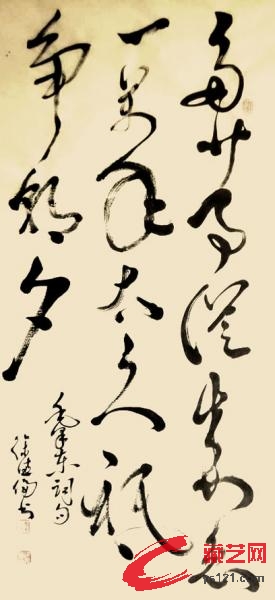 多少事從来急
一万年太久祇
争朝夕
毛泽东词句
徐书
艺网
121.com